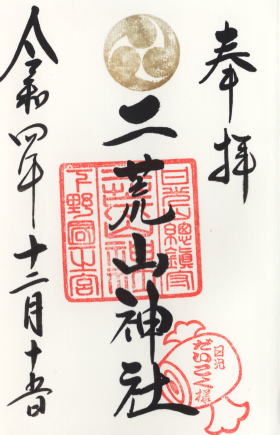 奉拝
日光山總鎮守
二荒山神社
下野國一之宮
日光
だいこく様
令和四年十二月十五日